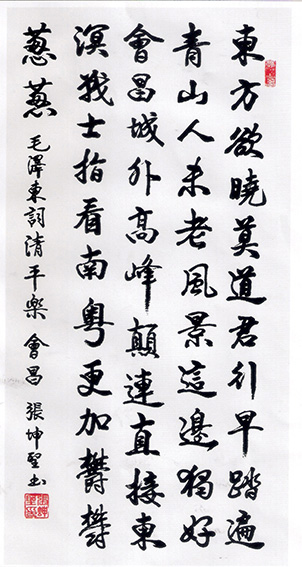 東方欲曉莫道君行早踏遍
青山人未老風景這邊獨好
會昌城外高峰顛連直接東
溟戰士指看南粵更加鬱鬱
蔥蔥 毛澤東詞清平樂 會昌 張坤 书